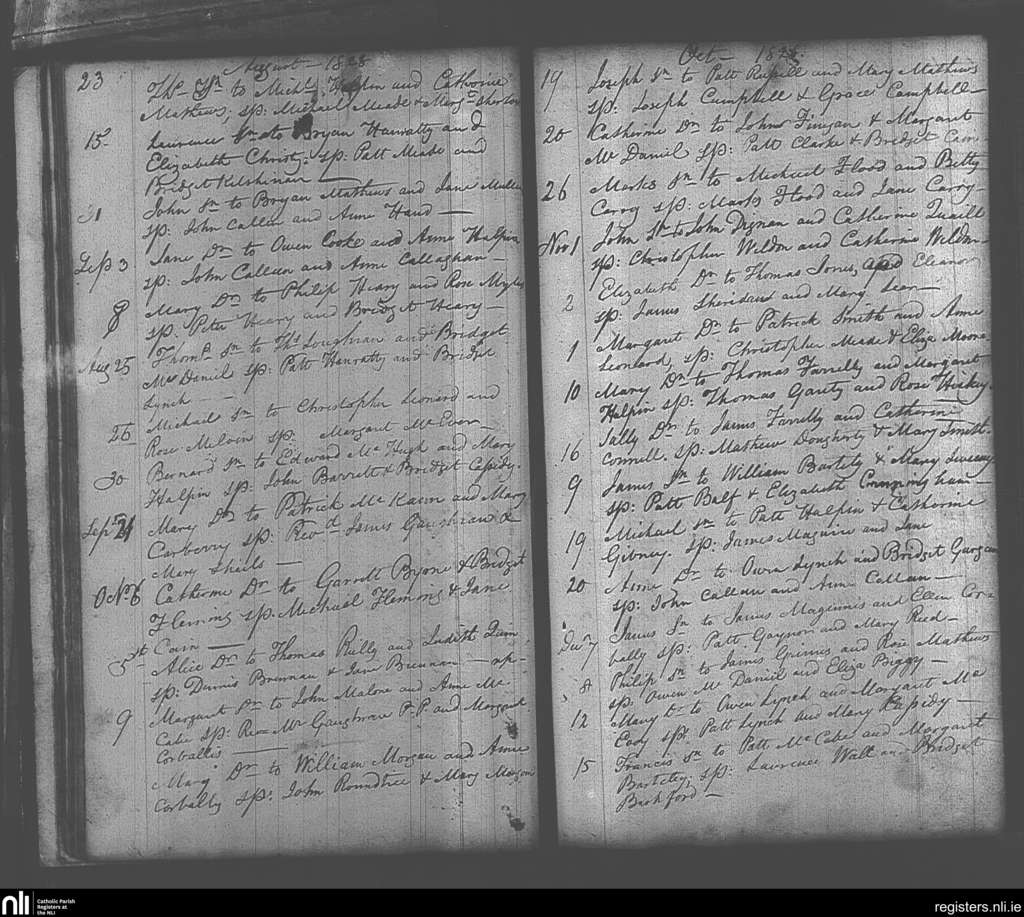 August - 1828
23 Ths Sn to Michl Halpin and Catherine
Mathews, sp: Michael Meade & Margt
15 Laurence Sn to Bryan Hanratty and
Elizabeth Christy; sp: Patt Meade and
Bridget Kilshinan
31 John Sn to Bryan Mathews and Jane Mullen
sp: John Callan and Anne Hand —
Sep 3 Jane Dr to Owen Cooke and Anne Halpin
sp: John Callan and Anne Callaghan —
8 Mary Dr to Philip Heary and Rose Myles
sp: Peter Heary and Bridget Heary —
Aug 25 Thoms Sn to Ths Loughran and Bridget
Mc Daniel sp: Patt Hanratty and Bridget
Lynch —
26 Michael Sn to Christopher Leonard and
Rose Melvin sp: Margaret Mc Evoy —
30 Bernard Sn to Edward Mc Hugh and Mary
Halpin sp: John Barrett & Bridget Cassidy.
Sepr 21 Mary Dr to Patrick Mc Kason and Mary
Carberry sp: Revd James Gaughran &
Mary Shiels —
Catherine Dr to Garrett Byrne & Bridget
Fleming sp: Michael Fleming & Jane
Cain —
5th Alice Dr to Thomas Rielly and Judith Quin
sp: Dennis Brennan & Jane Brennan —
9 Margaret Dr to John Malone and Anne Mc
Cabe sp: Revd Mr Gaughran P.P. and Margaret
Corballis —
Mary Dr to William Morgan and Anne
Corbally sp: John Roundtree & Mary Morgan
Oct - 1828
19 Joseph Sn to Patt Russell and Mary Mathews
sp: Joseph Campbell & Grace Campbell —
20 Catherine Dr to John Finegan & Margaret
Mc Daniel sp: Patt Clarke & Bridget
26 Marks Sn to Michael Flood and Betty
Carry sp: Marks Flood and Jane Carry —
Nov 1 John Sn to John Dignan and Catherine Quaill
sp: Christopher Weldn and Catherine Weldn —
2 Elizabeth Dr to Thomas Jones, and Eleanor
sp: James Sheridan and Mary Lear —
1 Margaret Dr to Patrick Smith and Anne
Leonard, sp: Christopher Meade & Eliza Moone
10 Mary Dr to Thomas Farrelly and Margaret
Halpin sp: Thomas Garity and Rose Hickey.
Sally Dr to James Farrelly and Catherine
16 Connell. sp: Mathew Dougherty & Mary Smith.
9 James Sn to William Bartely & Mary Sweeny
sp: Patt Balf & Elizabeth Cunningham —
Michael Sn to Patt Halpin & Catherine
19 Gibney. sp: James Maguire and Jane
20 Anne Dr to Owen Lynch and Bridget
sp: John Callan and Ann Callan —
Decr 7 James Sn to James Maginnis and Ellen Cor=
bally sp: Patt Gaynor and Mary Reed —
8 Philip Sn to James Grimes and Rose Mathews
sp: Owen Mc Daniel and Eliza Biggy —
12 Mary Dr to Owen Lynch and Margaret Mc
sp: Patt Lynch and Mary Cassidy —
15 Francis Sn to Patt Mc Cabe and Margaret
Barteley; sp: Laurence Wall and Bridget
Bashford —
nli
Catholic Parish
Registers at
the NLI
registers.nli.ie